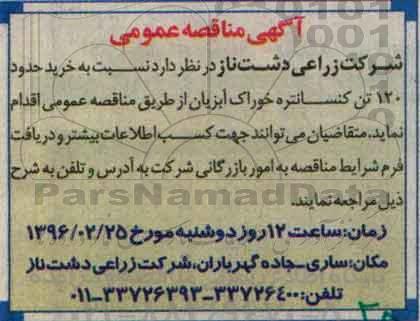 آگهی مناقصه عمومی
شرکت زراعی دشت ناز در نظر دارد نسبت به خرید حدود
۱۲۰ تن کنسانتره خوراک آبزیان از طریق مناقصه عمومی اقدام
نماید. متقاضیان می توانند جهت کسب اطلاعات بیشتر و دریافت
فرم شرایط مناقصه به امور بازرگانی شرکت به آدرس و تلفن به شرح
ذیل مراجعه نمایند.
ParsNamadData
زمان: ساعت ۱۲ روز دوشنبه مورخ ۱۳۹۶/۰۲/۲۵
مکان: ساری-جاده گهرباران، شرکت زراعی دشت ناز
تلفن: ۳۳۷۲۶۴۰۰-۳۳۷۲۶۳۹۳-۰۱۱